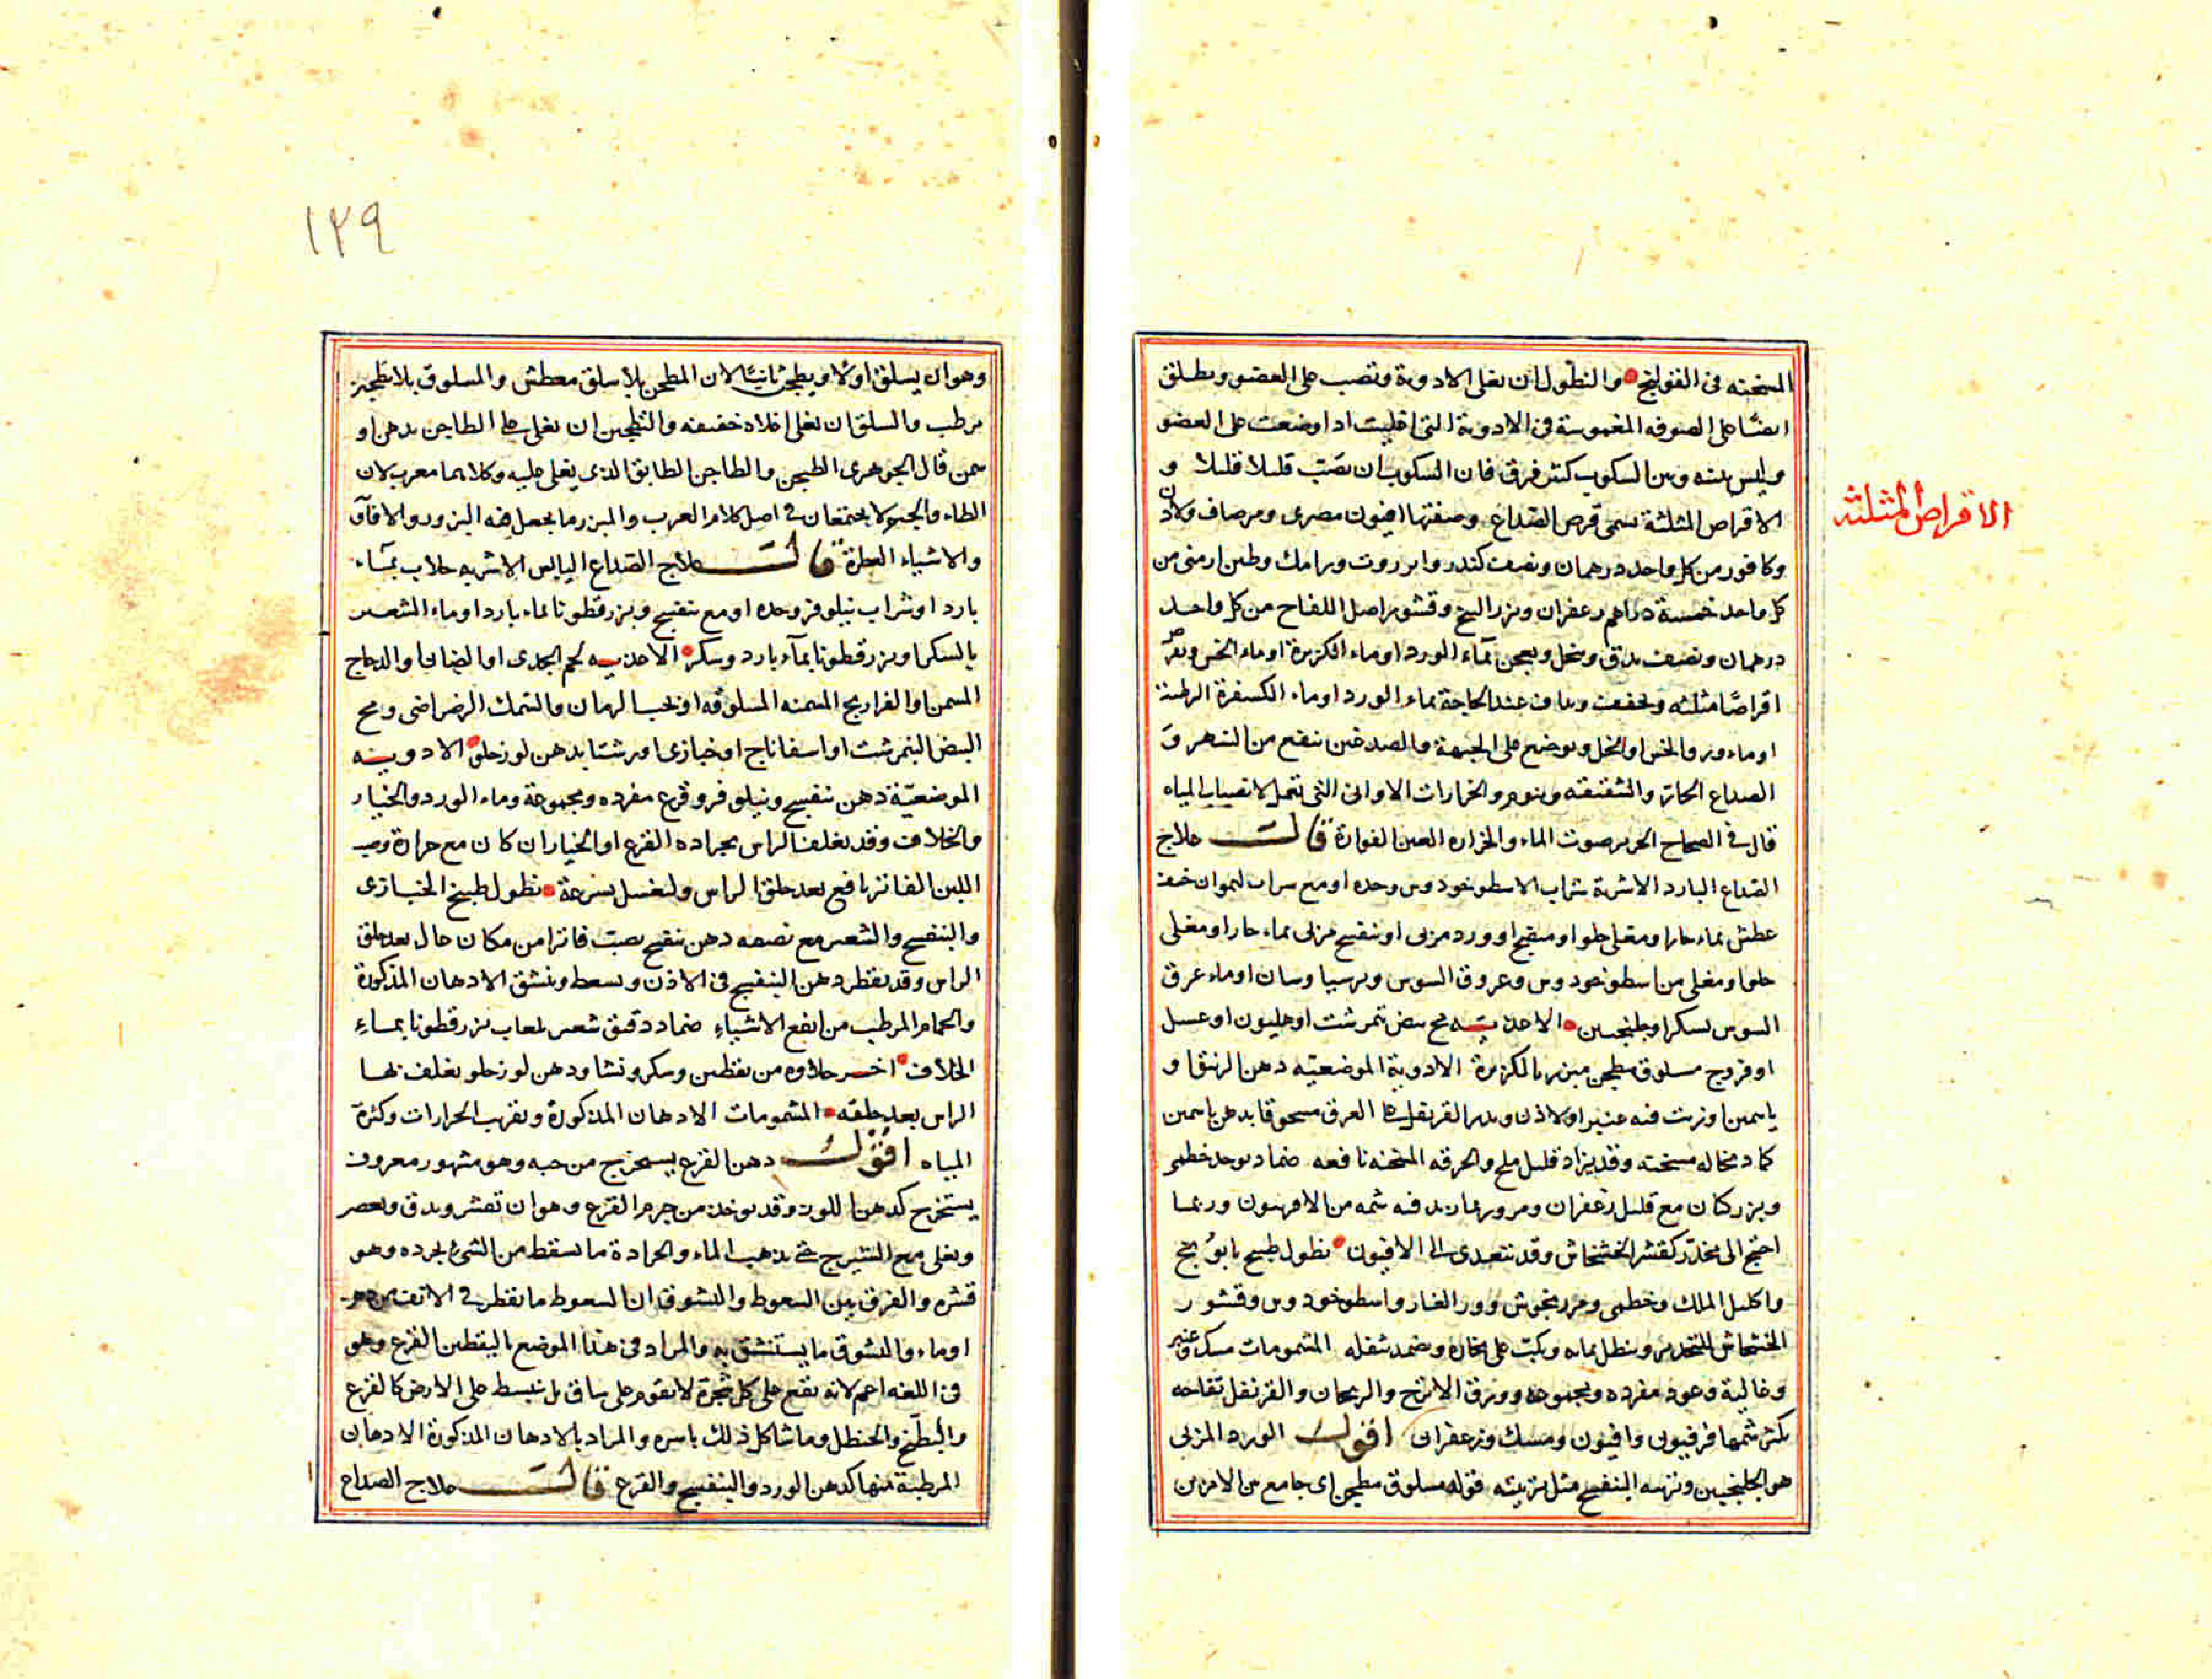 المسخنة فى القولنج والنطول ان تغلى الادوية وتصب على العضو ويطلق
ايضًا على الصوفه المغموسة فى الادوية التى اغليت اذا وضعت على العضو
وليس بينه وبين السكوب كثير فرق فان السكوب ان تصب قليلا قليلا و
الاقراص المثلثة تسمى قرص الصداع وصفتها افيون مصرى ومر صاف ولادن
الاقراص المثلثة
وكافور من كل واحد درهمان ونصف كندر وانزروت ورامك وطين ارمنى من
كل واحد خمسة دراهم زعفران وبزر البنج وقشور اصل اللفاح من كل واحد
درهمان ونصف يدق وينخل ويعجن بماء الورد او ماء الكزبرة او ماء الخس ويقرص
اقراصًا مثلثه ويجفف ويداف عند الحاجة بماء الورد او ماء الكسفرة الرطبة
او ماء ورق الخس او الخل ويوضع على الجبهة والصدغين ينفع من السهر و
الصداع الحار والشقيقة وينوم والخرارات الاوانى التى تعمل لانصباب المياه
قال فى الصحاح الخرير صوت الماء والخراره العين الفوارة قالــــ علاج
الصداع البارد الاشربة شراب الاسطوخودوس وحده او مع شراب ليمو ان خيف
عطش بماء حار او مغلى حلو او منضج او ورد مربى او بنفسج مربى بماء حار او مغلى
حلو او مغلى من اسطوخودوس وعروق السوس وبرسياوسان او ماء عرق
السوس بسكر او جلنجبين الاغذيـــه مح بيض نيمرشت او هليون او عسل
او فروج مسلوق مطجن مبزر بالكزبرة الادوية الموضعيه دهن الزنبق او
ياسمين او زيت فيه عنبر او لاذن ويذر القرنفل على الفرق مسحوقا بدهن ياسمين
كماد نخاله مسخنه وقد يزاد قليل ملح والخرقه المسخنه نافعه ضماد يوخذ خطمى
وبزر كتان مع قليل زعفران ومر وربما زيد فيه شمه من الافربيون وربمـا
احتيج الى مخدر كقشر الخشخاش وقد نتعدى الى الافيون نطول طبيخ بابونج
واكليل الملك وخطمى ومرزنجوش وورق الغار واسطوخودوس وقشور
الخشخاش للتخدير وينطل بمائه ويكب على بخاره ويضمد بثفله المشمومات مسك وعنبر
وغالية وعود مفرده ومجموعه وورق الاترج والريحان والقرنفل تفاحه
يكثر شمها فربيون وافيون ومسك وزعفران اقولــــ الورد المربى
هو الجلنجبين وتربيه البنفسج مثل تربيته قوله مسلوق مطجن اى جامع بين الامرين
١٢٩
وهو ان يسلق اولا ويطجن ثانيًا لان المطجن بلا سلق معطش والمسلوق بلا تطجين
مرطب والسلق ان يغلى اغلاء خفيفه والتطجين ان يغلى على الطاجن بدهن او
سمن قال الجوهرى الطيجن والطاجن الطابق الذى يغلى عليه وكلاهما معرب لان
الطاء والجيم لا يجتمعان فى اصل كلام العرب والمبزر ما يجعل فيه البزور والافاوه
والاشياء العطرة قالــــ علاج الصداع اليابس الاشربه جلاب بمـاء
بارد او شراب نيلوفر وحده او مع بنفسج وبزر قطونا بماء بارد او ماء الشعير
بالسكر او بزر قطونا بماء بارد وسكر الاغذيـــه لحم الجدى او الضان او الدجاج
المسمن او الفراريج المسمنه المسلوقه او بحب الرمان والسمك الرضراضى ومح
البيض النيمرشت او اسفاناج او خبازى او رشتا بدهن لوز حلو الادويـــه
الموضعيّة دهن بنفسج ونيلوفر وقرع مفرده ومجموعة وماء الورد والخيار
والخلاف وقد يغلف الراس بجراده القرع او الخيار ان كان مع حرارة وصب
اللبن الفاتر نافع بعد حلق الراس وليغسل بسرعة نطول طبيخ الخبـازى
والبنفسج والشعير مع نصفه دهن بنفسج يصب فاترا من مكان عال بعد حلق
الراس وقد يقطر دهن البنفسج فى الاذن ويسعط وينشق الادهان المذكورة
والحمام المرطب من انفع الاشياء ضماد دقيق شعير بلعاب بزر قطونا بمـاء
الخلاف اخـــر حلاوه من يقطين وسكر ونشا ودهن لوز حلو يغلف بهـا
الراس بعد حلقه المشمومات الادهان المذكورة وتقرب الخرارات وكثرة
المياه اقولــــ دهن القرع يستخرج من حبه وهو مشهور معروف
يستخرج كدهن اللوز وقد يوخذ من جرم القرع وهو ان تقشر ويدق ويعصر
ويغلى مع الشيرج حتى يذهب الماء والجرادة ما يسقط من الشئ بجرده وهو
قشره والفرق بين السعوط والنشوق ان السعوط ما يقطر فى الانف من دهن
او ماء والنشوق ما يستنشق به والمراد فى هذا الموضع باليقطين القرع وهو
فى اللغه اعم لانه يقع على كل شجرة لا تقوم على ساق بل تنبسط على الارض كالقرع
والبطيخ والحنظل وما شاكل ذلك باسره والمراد بالادهان المذكورة الادهان
المرطبة منها كدهن الورد والبنفسج والقرع قالــــ علاج الصداع